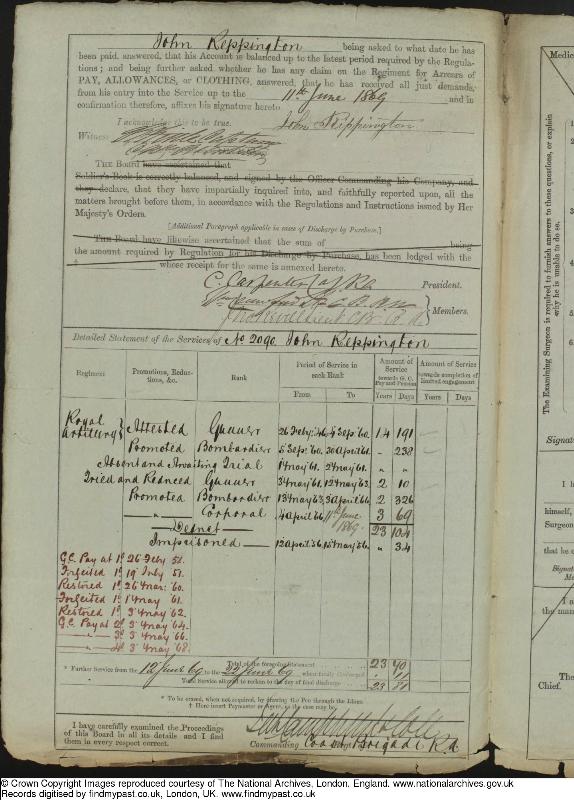 John Reppington being asked to what date he has
been paid, answered, that his Account is balanced up to the latest period required by the Regula-
tions; and being further asked whether he has any claim on the Regiment for Arrears of
PAY, ALLOWANCES, or CLOTHING, answered, that he has received all just demands,
from his entry into the Service up to the 11th June 1869 and in
confirmation thereof, affixes his signature hereto
I acknowledge this to be true. John Reppington
Witness
THE BOARD have ascertained that
Soldier's Book is correctly balanced, and signed by the Officer Commanding his Company, and
they declare, that they have impartially inquired into, and faithfully reported upon, all the
matters brought before them, in accordance with the Regulations and Instructions issued by Her
Majesty's Orders.
[Additional Paragraph applicable in cases of Discharge by Purchase.]
The Board have likewise ascertained that the sum of being
the amount required by Regulation for his Discharge by Purchase, has been lodged with the
whose receipt for the same is annexed hereto.
C. Carpenter President.
Members.
Detailed Statement of the Services of No 2090 John Reppington
Regiment Promotions, Reduc-tions, &c. Rank Period of Service in each Rank Amount of Service towards G. C. Pay and Pension Amount of Service towards completion of limited engagement
From To Years Days Years Days
Royal Artillery Attested Gunner 26 Feby. 46 4 Sep. 60 14 191
Promoted Bombardier 5 Sep. 60 30 April 61 " 238
Absent and Awaiting Trial 1 May 61 2 May 61 " "
Tried and Reduced Gunner 3 May 61 12 May 63 2 10
Promoted Bombardier 13 May 63 3 April 66 2 326
" Corporal 4 April 66 11th June 1869 3 69
Deduct 23 104
Imprisoned 12 April 56 15 May 56 " 34
G.C. Pay at 1d 26 Feby 51
Forfeited 1d 19 July 51
Restored 1d 26 Mar: 60
Forfeited 1d 1 May 61
Restored 1d 3 May 62
G.C. Pay at 2d 3 May 64
" 3d 3 May 66
" 4d 3 May 68
Total of the foregoing Statement 23 70
* Further Service from the 12 June 69 to the 22 June 69, when finally discharged " 11
Total Service allowed to reckon to the day of final discharge 23 81
* To be erased, when not required, by drawing the Pen through the Lines.
† Here insert Paymaster or Agent, as the case may be.
I have carefully examined the Proceedings
of this Board in all its details and I find
them in every respect correct.
Commanding Coast Brigade R.A.
Medic
The Examining Surgeon is required to furnish answers to these questions, or explain
why he is unable to do so.
Signat
I h
himself,
Surgeon
that he
Signat
I a
the man
The
Chief.
© Crown Copyright Images reproduced courtesy of The National Archives, London, England. www.nationalarchives.gov.uk
Records digitised by findmypast.co.uk, London, UK. www.findmypast.co.uk